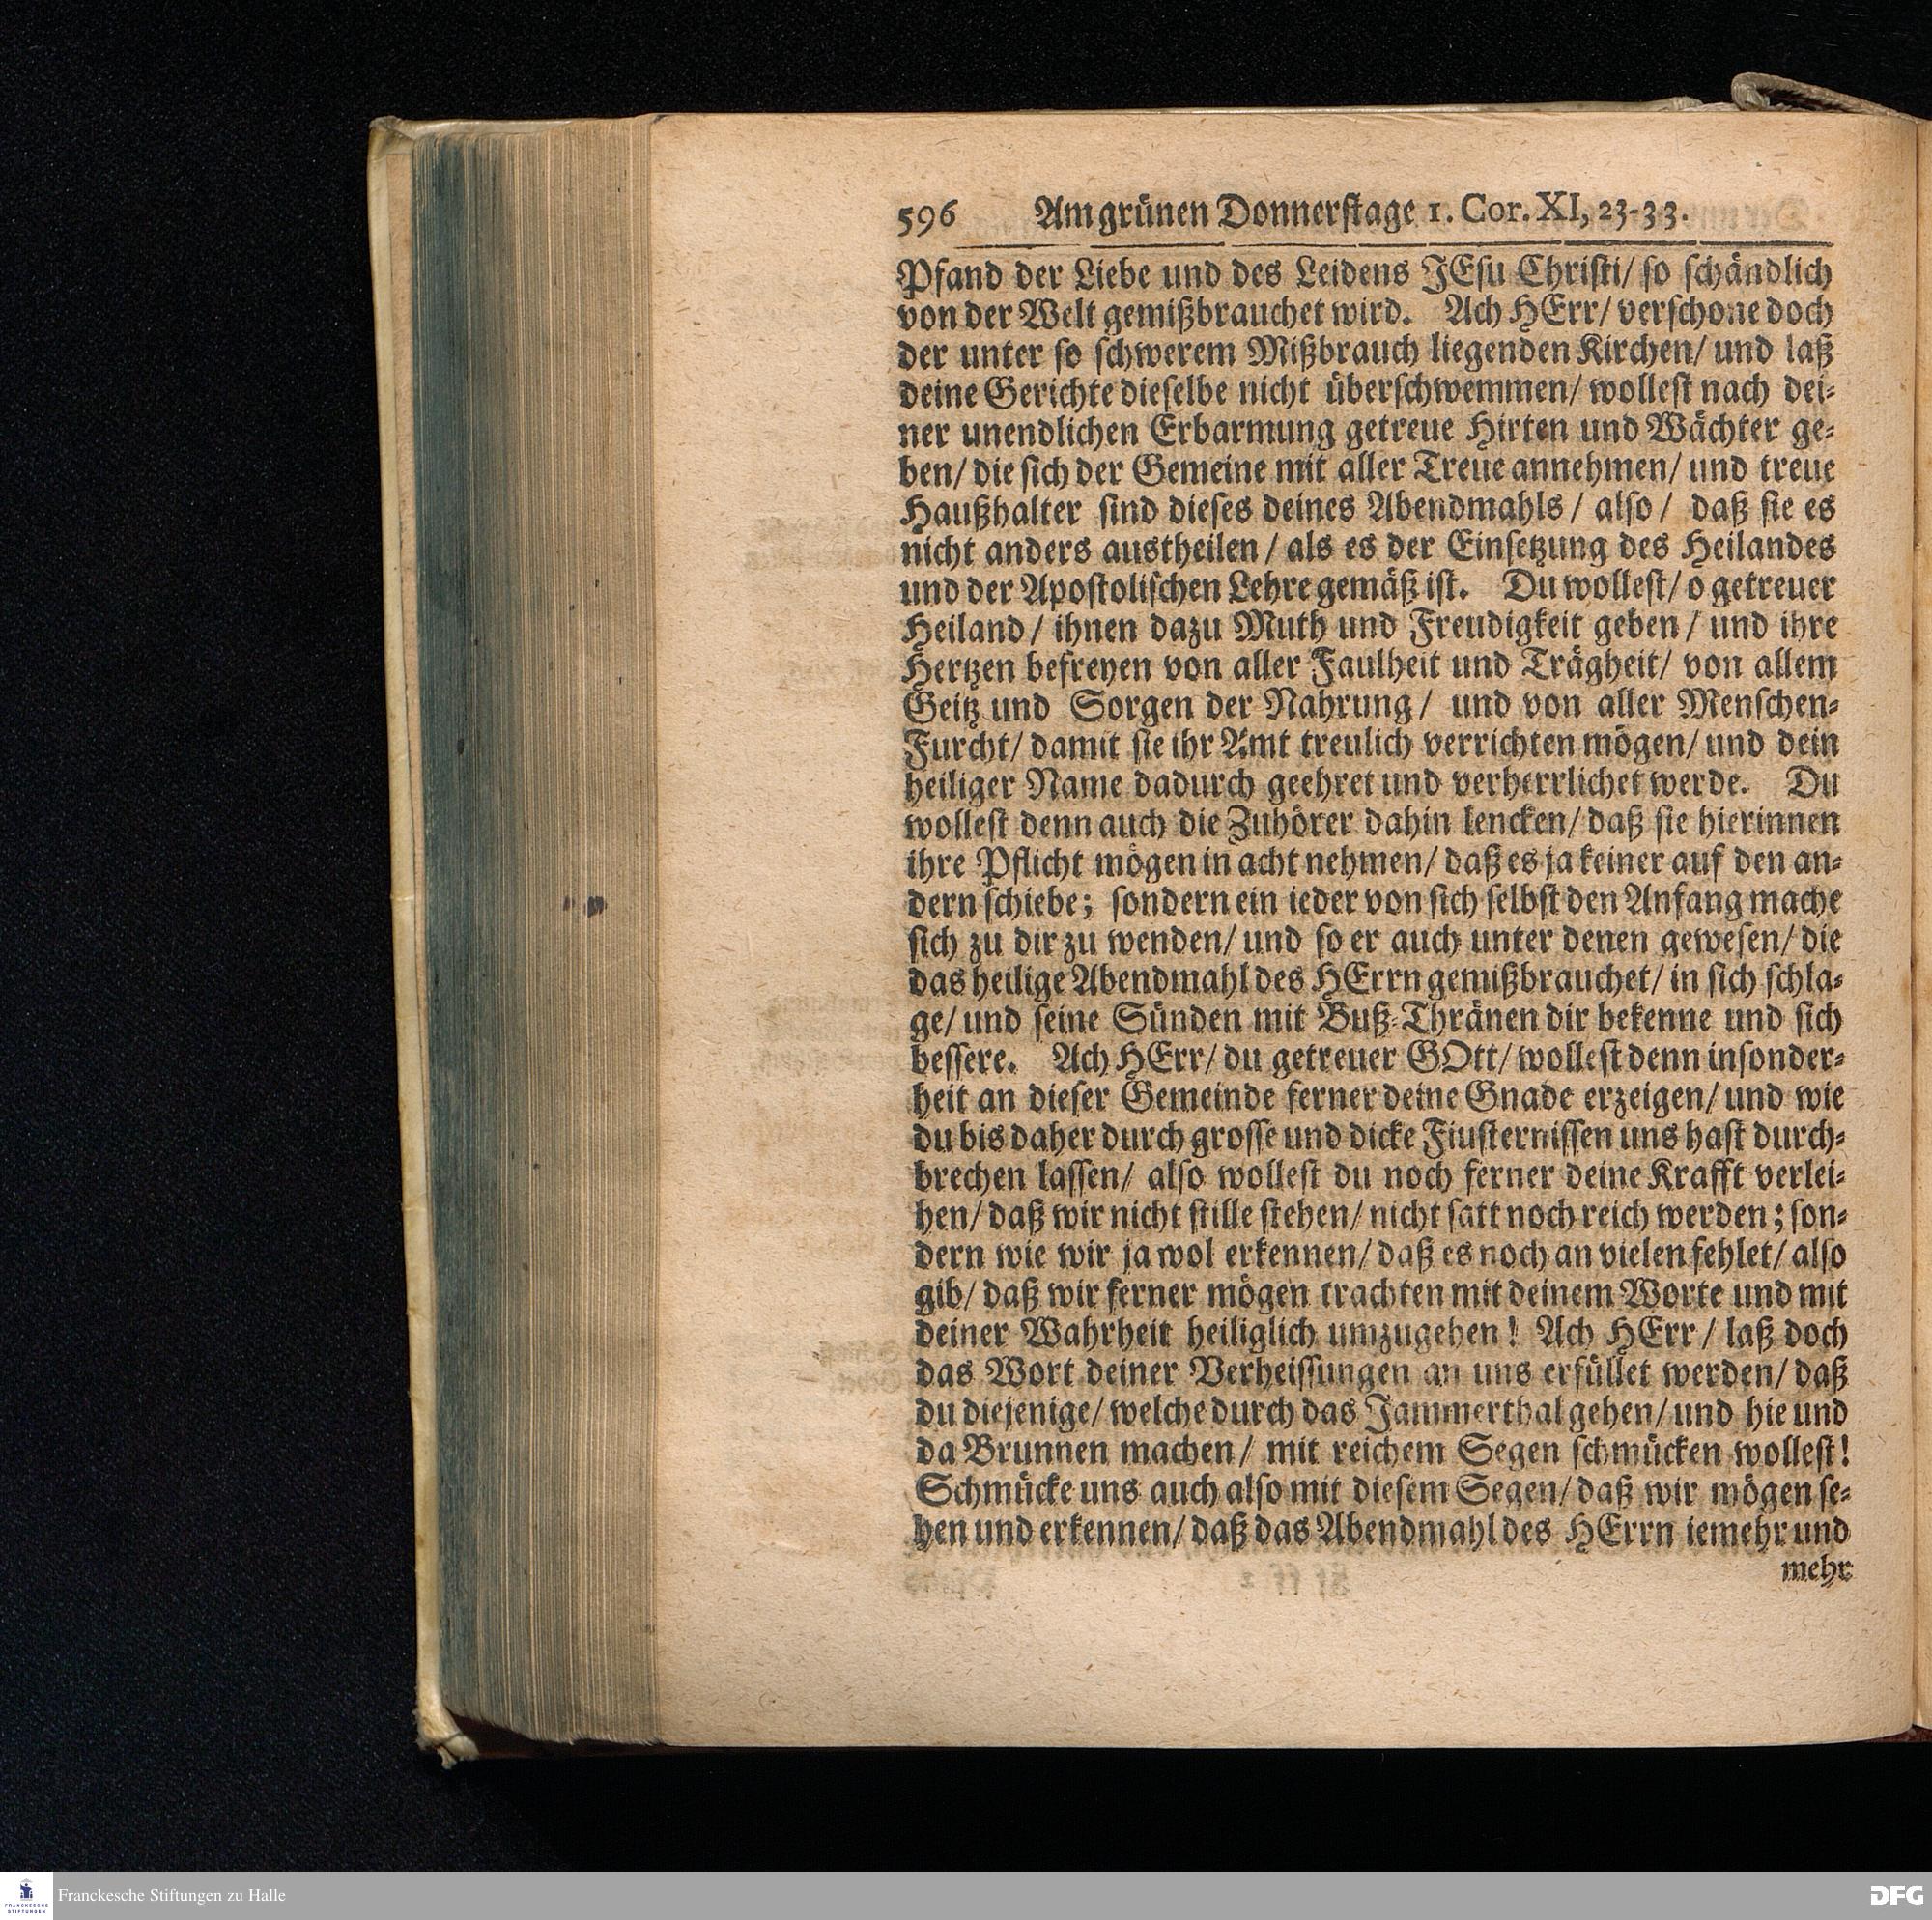 596 Am grünen Donnerstage 1. Cor. XI, 23-33.
Pfand der Liebe und des Leidens JEsu Christi/ so schändlich
von der Welt gemißbrauchet wird. Ach HErr/ verschone doch
der unter so schwerem Mißbrauch liegenden Kirchen/ und laß
deine Gerichte dieselbe nicht überschwemmen/ wollest nach dei-
ner unendlichen Erbarmung getreue Hirten und Wächter ge-
ben/ die sich der Gemeine mit aller Treue annehmen/ und treue
Haußhalter sind dieses deines Abendmahls / also / daß sie es
nicht anders austheilen / als es der Einsetzung des Heilandes
und der Apostolischen Lehre gemäß ist. Du wollest/ o getreuer
Heiland / ihnen dazu Muth und Freudigkeit geben / und ihre
Hertzen befreyen von aller Faulheit und Trägheit/ von allem
Geitz und Sorgen der Nahrung / und von aller Menschen-
Furcht/ damit sie ihr Amt treulich verrichten mögen/ und dein
heiliger Name dadurch geehret und verherrlichet werde. Du
wollest denn auch die Zuhörer dahin lencken/ daß sie hierinnen
ihre Pflicht mögen in acht nehmen/ daß es ja keiner auf den an-
dern schiebe; sondern ein ieder von sich selbst den Anfang mache
sich zu dir zu wenden/ und so er auch unter denen gewesen/ die
das heilige Abendmahl des HErrn gemißbrauchet/ in sich schla-
ge/ und seine Sünden mit Buß-Thränen dir bekenne und sich
bessere. Ach HErr/ du getreuer GOtt/ wollest denn insonder-
heit an dieser Gemeinde ferner deine Gnade erzeigen/ und wie
du bis daher durch grosse und dicke Fiusternissen uns hast durch-
brechen lassen/ also wollest du noch ferner deine Krafft verlei-
hen/ daß wir nicht stille stehen/ nicht satt noch reich werden; son-
dern wie wir ja wol erkennen/ daß es noch an vielen fehlet/ also
gib/ daß wir ferner mögen trachten mit deinem Worte und mit
deiner Wahrheit heiliglich umzugehen! Ach HErr / laß doch
das Wort deiner Verheissungen an uns erfüllet werden/ daß
du diejenige/ welche durch das Jammerthal gehen/ und hie und
da Brunnen machen/ mit reichem Segen schmücken wollest!
Schmücke uns auch also mit diesem Segen/ daß wir mögen se-
hen und erkennen/ daß das Abendmahl des HErrn iemehr und
mehr
FRANCKESCHE STIFTUNGEN
Franckesche Stiftungen zu Halle
DFG